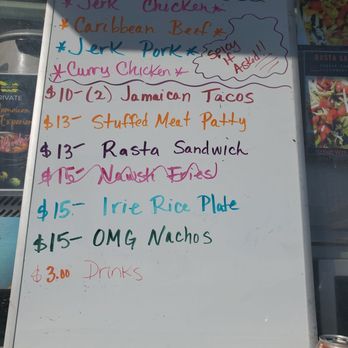 *Jerk Chicken*
*Caribbean Beef*
*Jerk Pork*
*Curry Chicken*
Spicy
if
Asked!!!
$10-(2) Jamaican Tacos
$13- Stuffed Meat Patty
$13- Rasta Sandwich
$15- Fries
$15- Irie Rice Plate
$15- OMG Nachos
$3.00 Drinks
PRIVATE
Experience
RASTA